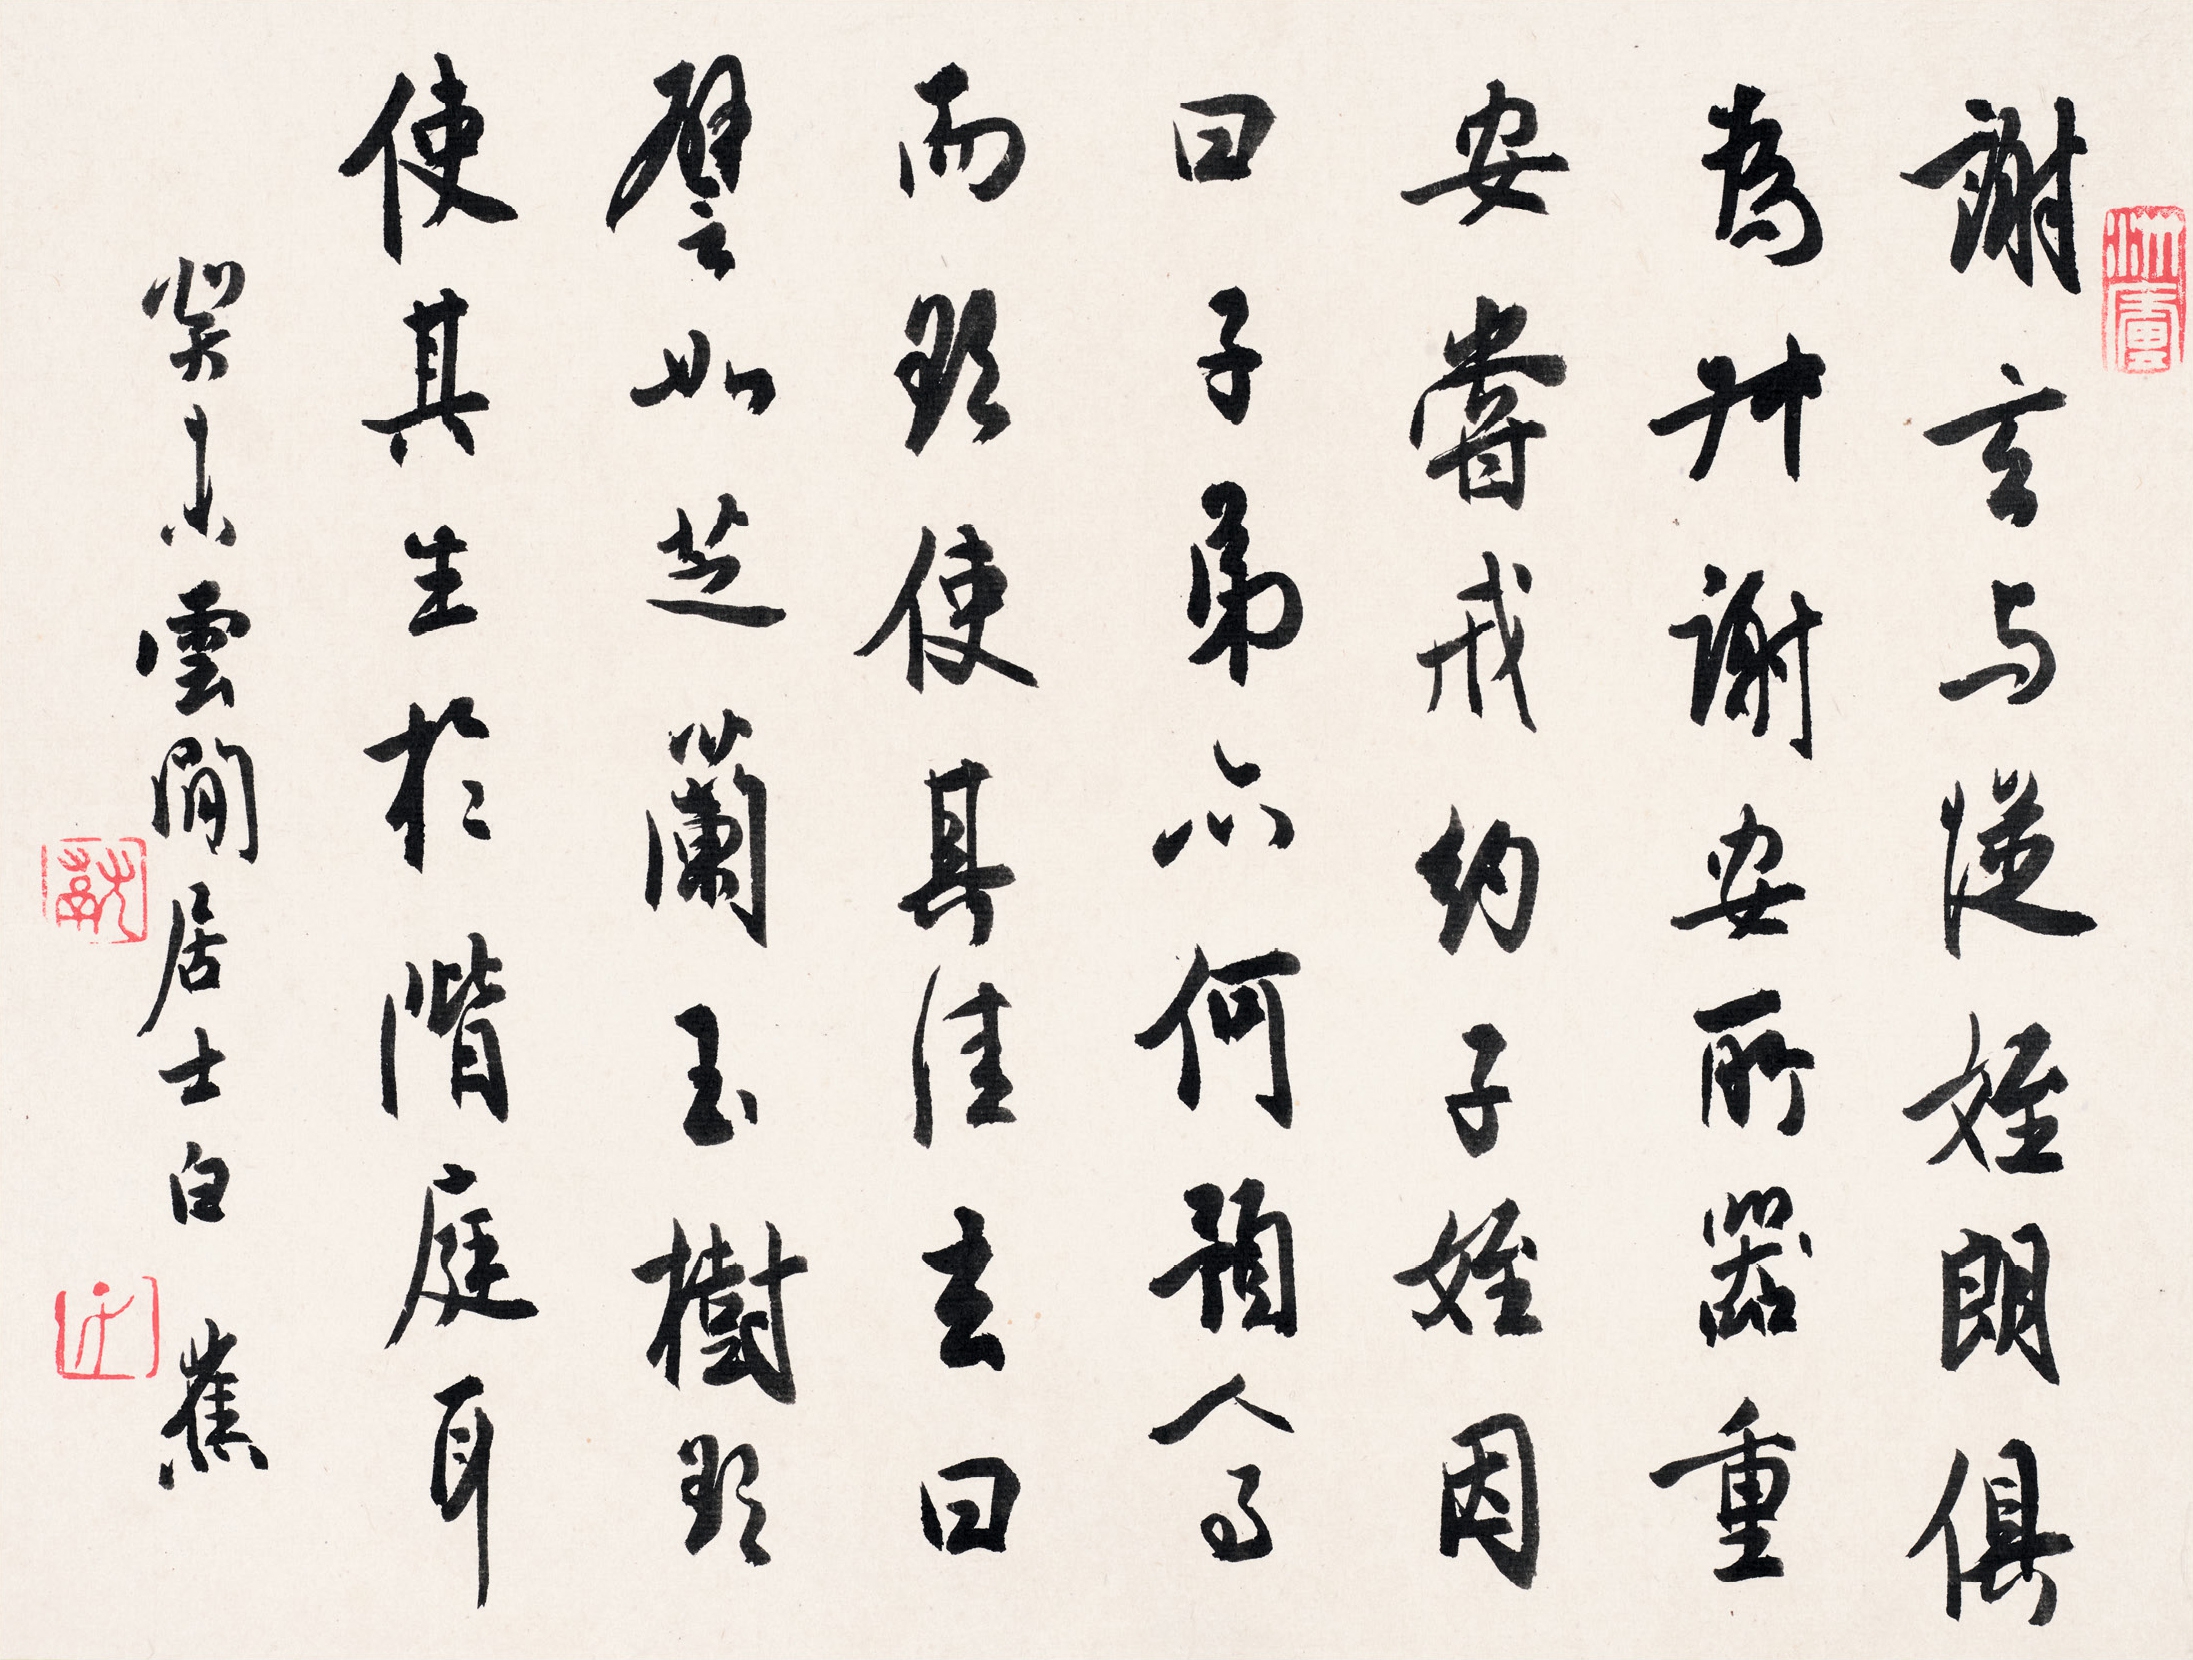 謝玄与從姪朗俱
為叔謝安所器重
安嘗戒約子姪因
曰子弟亦何預人事
而欲使其佳玄曰
譬如芝蘭玉樹欲
使其生於階庭耳
癸未雲間居士白蕉